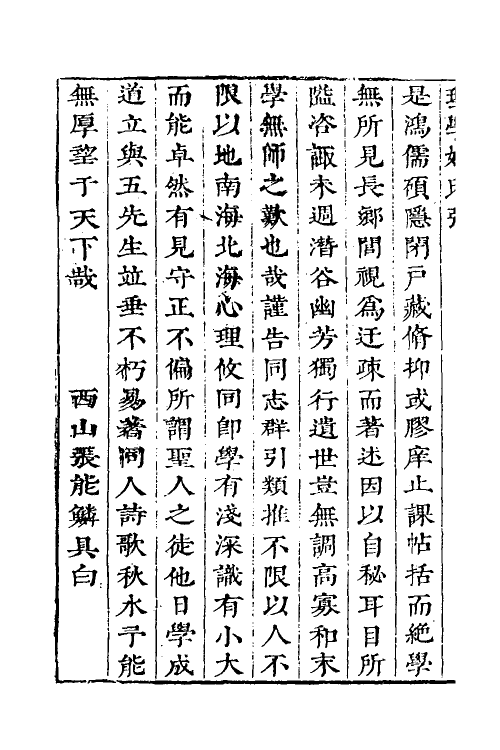 是鴻儒碩隱閉戶藏脩抑或膠庠止課帖括而絕學
無所見長鄉閭視爲迂疎而著述因以自秘耳目所
隘咨諏未週潛谷幽芳獨行遺世豈無調高寡和末
學無師之歎也哉謹告同志群引類推不限以人不
限以地南海北海心理攸同卽學有淺深識有小大
而能卓然有見守正不偏所謂聖人之徒他日學成
道立與五先生並垂不朽易著同人詩歌秋水予能
無厚望于天下哉 西山張能鱗具白